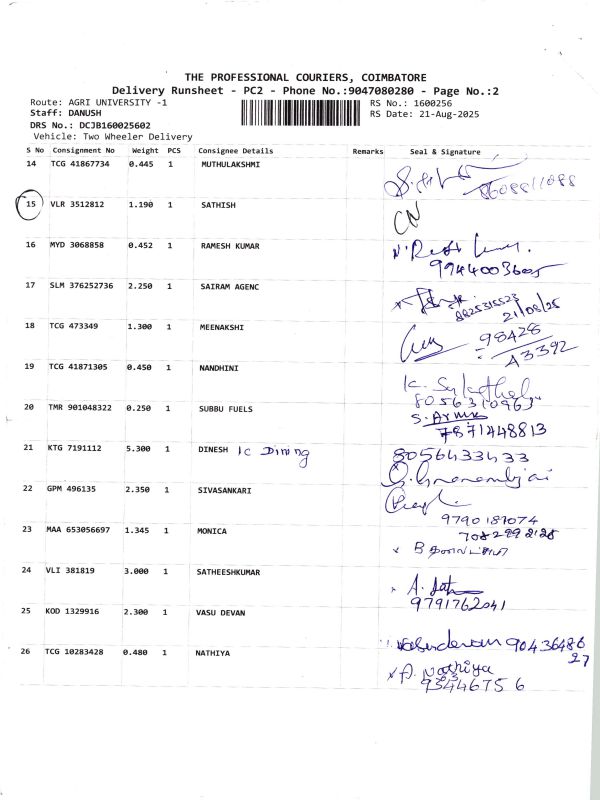 THE PROFESSIONAL COURIERS, COIMBATORE
Delivery Runsheet - PC2 - Phone No.:9047080280 - Page No.:2
Route: AGRI UNIVERSITY -1 RS No.: 1600256
Staff: DANUSH RS Date: 21-Aug-2025
DRS No.: DCJB160025602
Vehicle: Two Wheeler Delivery
S No Consignment No Weight PCS Consignee Details Remarks Seal & Signature
14 TCG 41867734 0.445 1 MUTHULAKSHMI
15 VLR 3512812 1.190 1 SATHISH CN
16 MYD 3068858 0.452 1 RAMESH KUMAR
17 SLM 376252736 2.250 1 SAIRAM AGENC
21/08/25
18 TCG 473349 1.300 1 MEENAKSHI
98428
A3392
19 TCG 41871305 0.450 1 NANDHINI
20 TMR 901048322 0.250 1 SUBBU FUELS
7871448813
21 KTG 7191112 5.300 1 DINESH IC Dining 8056433433
22 GPM 496135 2.350 1 SIVASANKARI
9790187074
23 MAA 653056697 1.345 1 MONICA
24 VLI 381819 3.000 1 SATHEESHKUMAR
9791762041
25 KOD 1329916 2.300 1 VASU DEVAN
Vasudevan 90436486
27
26 TCG 10283428 0.480 1 NATHIYA A. Nathiya